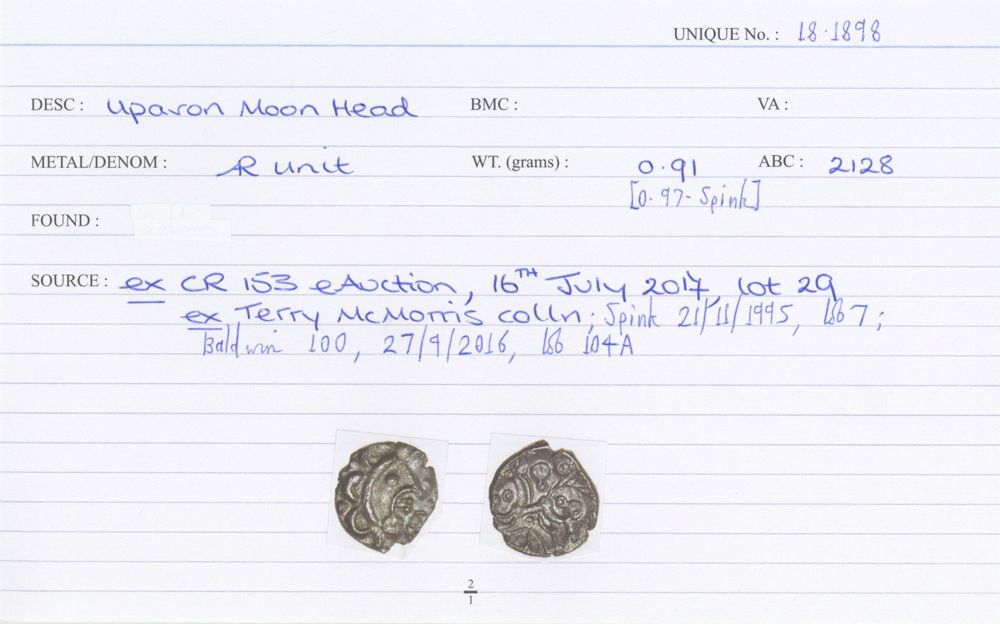 UNIQUE No. : 18.1898
DESC : Upavon Moon Head BMC : VA :
METAL/DENOM : AR Unit WT. (grams) : 0.91 ABC : 2128
[0.97 - Spink]
FOUND :
SOURCE : ex CR 153 eAuction, 16TH July 2017, lot 29
ex Terry McMorris colln; Spink 21/11/1995, lot 7;
Baldwin 100, 27/9/2016, lot 104A
2
1